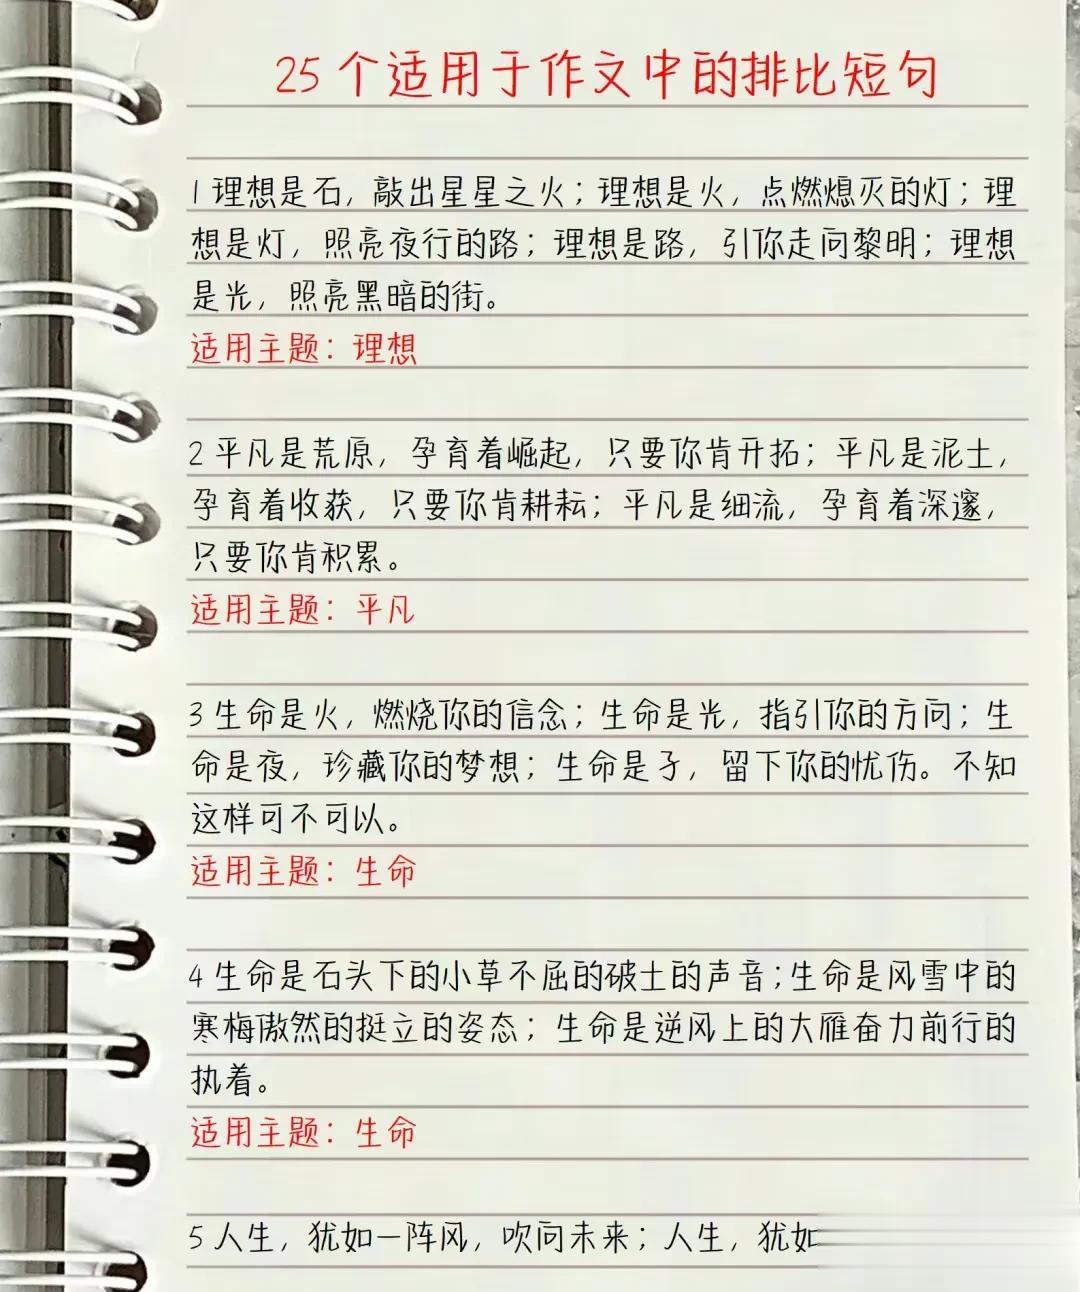 25个适用于作文中的排比短句
1 理想是石，敲出星星之火；理想是火，点燃熄灭的灯；理
想是灯，照亮夜行的路；理想是路，引你走向黎明；理想
是光，照亮黑暗的街。
适用主题：理想
2 平凡是荒原，孕育着崛起，只要你肯开拓；平凡是泥土，
孕育着收获，只要你肯耕耘；平凡是细流，孕育着深邃，
只要你肯积累。
适用主题：平凡
3 生命是火，燃烧你的信念；生命是光，指引你的方向；生
命是夜，珍藏你的梦想；生命是孑，留下你的忧伤。不知
这样可不可以。
适用主题：生命
4 生命是石头下的小草不屈的破土的声音；生命是风雪中的
寒梅傲然的挺立的姿态；生命是逆风上的大雁奋力前行的
执着。
适用主题：生命
5 人生，犹如一阵风，吹向未来；人生，犹如